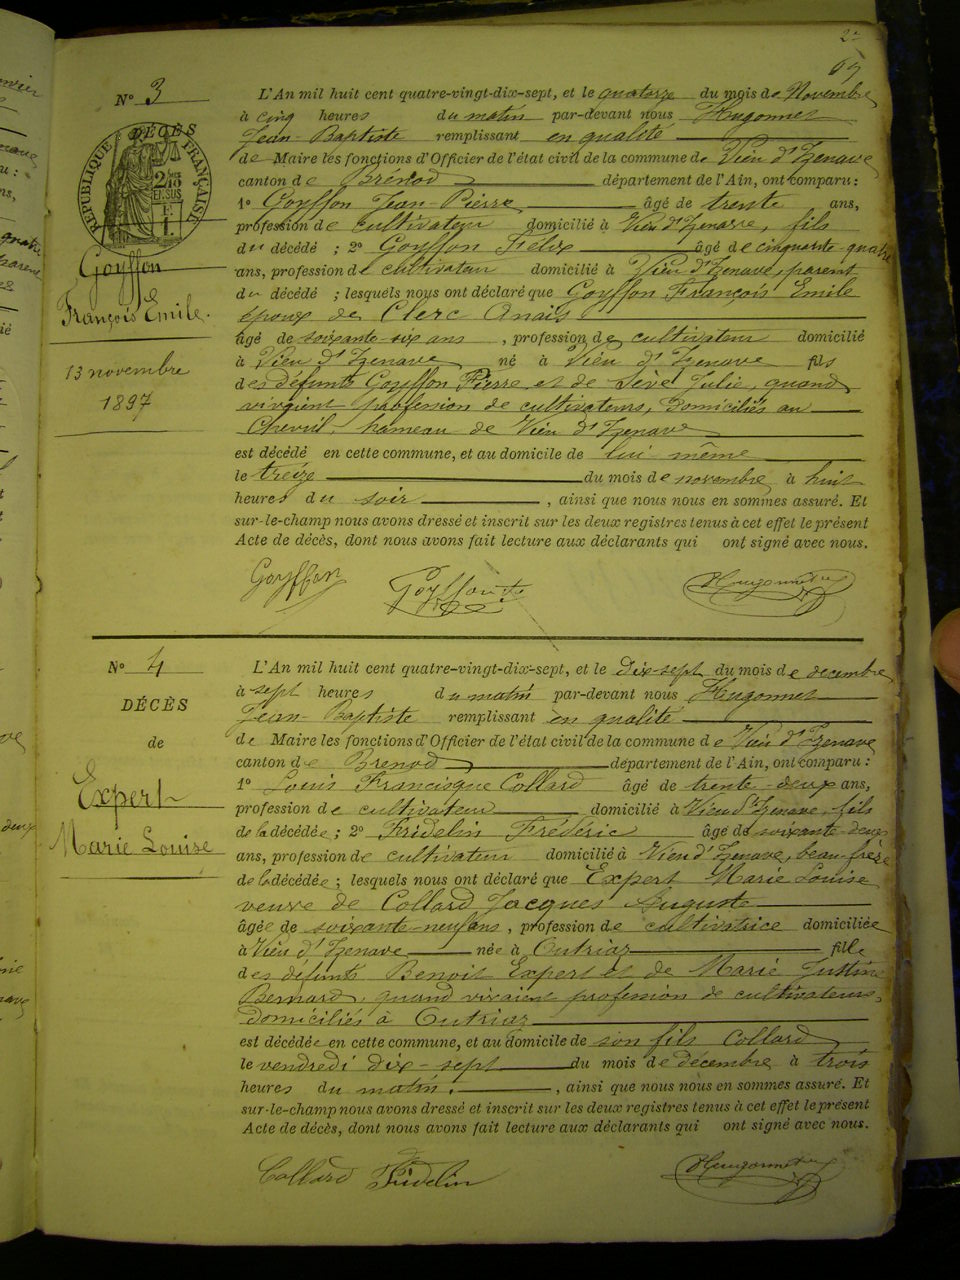 2e
67
N° 3
DÉCÈS
RÉPUBLIQUE FRANÇAISE
2/10 EN SUS
Goyffon
François Emile.
13 novembre
1897
L'An mil huit cent quatre-vingt-dix-sept, et le quatorze du mois de Novembre
à cinq heures du matin par-devant nous Hugonnet
Jean-Baptiste remplissant en qualité
de Maire les fonctions d'Officier de l'état civil de la commune de Vieu d'Izenave
canton de Brénod département de l'Ain, ont comparu :
1° Goyffon Jean-Pierre âgé de trente ans,
profession de cultivateur domicilié à Vieu d'Izenave, fils
du décédé ; 2° Goyffon Félix âgé de cinquante-quatre
ans, profession de cultivateur domicilié à Vieu d'Izenave, parent
du décédé ; lesquels nous ont déclaré que Goyffon François Emile
époux de Clerc Anaïs
âgé de soixante-six ans , profession de cultivateur domicilié
à Vieu d'Izenave né à Vieu d'Izenave fils
des défunts Goyffon Pierre et de Sève Julie, quand
vivaient profession de cultivateurs, domiciliés au
Chevril, hameau de Vieu d'Izenave
est décédé en cette commune, et au domicile de lui même
le treize du mois de novembre à huit
heures du soir , ainsi que nous nous en sommes assuré. Et
sur-le-champ nous avons dressé et inscrit sur les deux registres tenus à cet effet le présent
Acte de décès, dont nous avons fait lecture aux déclarants qui ont signé avec nous.
Goyffon Goyffon f. Hugonnet
N° 4
DÉCÈS
de
Expert
Marie Louise
L'An mil huit cent quatre-vingt-dix-sept, et le dix-sept du mois de decembre
à sept heures du matin par-devant nous Hugonnet
Jean-Baptiste remplissant en qualité
de Maire les fonctions d'Officier de l'état civil de la commune de Vieu d'Izenave
canton de Brenod département de l'Ain, ont comparu :
1° Louis Francisque Collard âgé de trente-deux ans,
profession de cultivateur domicilié à Vieu d'Izenave, fils
de la décédée ; 2° Fridelin Fréderic âgé de soixante-deux
ans, profession de cultivateur domicilié à Vieu d'Izenave, beau-frère
de la décédée ; lesquels nous ont déclaré que Expert Marie Louise
veuve de Collard Jacques Auguste
âgée de soixante-neuf ans , profession de cultivatrice domiciliée
à Vieu d'Izenave née à Outriaz fille
des défunts Benoit Expert et de Marie Justine
Bernard, quand vivaient profession de cultivateurs,
domiciliés à Outriaz
est décédée en cette commune, et au domicile de son fils Collard
le vendredi dix-sept du mois de décembre à trois
heures du matin. , ainsi que nous nous en sommes assuré. Et
sur-le-champ nous avons dressé et inscrit sur les deux registres tenus à cet effet le présent
Acte de décès, dont nous avons fait lecture aux déclarants qui ont signé avec nous.
Collard Fridelin Hugonnet